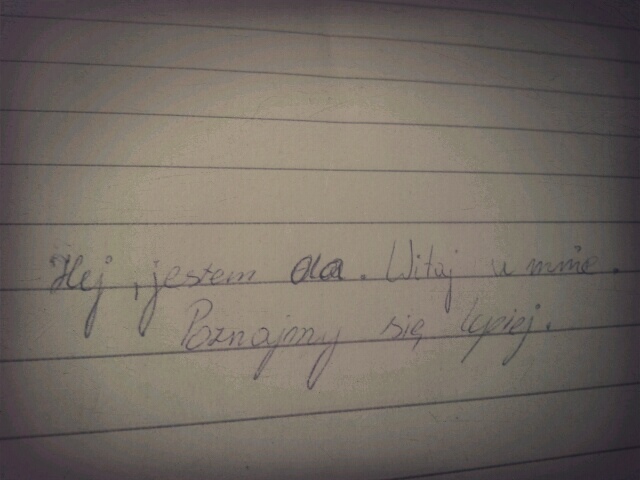 Hej, jestem Ola. Witaj u mnie.
Poznajmy się lepiej.